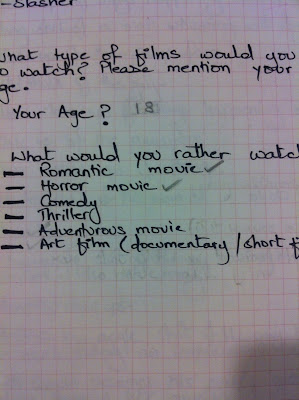 -Slasher
What type of films would you
to watch? Please mention your
age.
Your Age? 18
What would you rather watch
– Romantic movie ✓
– Horror movie ✓
– Comedy
– Thriller
– Adventurous movie
– Art film (documentary/short fi